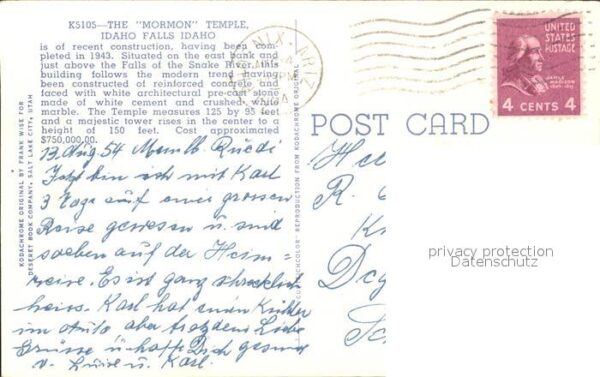 K5105—THE "MORMON" TEMPLE,
IDAHO FALLS IDAHO
is of recent construction, having been com-
pleted in 1943. Situated on the east bank and
just above the Falls of the Snake River, this
building follows the modern trend, having
been constructed of reinforced concrete and
faced with white architectural pre-cast stone
made of white cement and crushed white
marble. The Temple measures 125 by 95 feet
and a majestic tower rises in the center to a
height of 150 feet. Cost approximated
$750,000.00.
13. Aug. 54
Jetzt bin ich mit Karl
3 Tage auf einer grossen
Reise gewesen u. sind
soeben auf der Heim-
reise. Es ist ganz schrecklich
heiss. Karl hat einen Kühler
im Auto aber trotzdem Liebe
Grüsse u. hoffe Dich gesund
v. Luise u. Karl.
KODACHROME ORIGINAL BY FRANK WISE FOR
DESERET BOOK COMPANY, SALT LAKE CITY, UTAH
REPRODUCTION FROM KODACHROME ORIGINAL
PHOENIX ARIZ
UNITED
STATES
POSTAGE
JAMES
MADISON
4 CENTS 4
POST CARD
R.
privacy protection
Datenschutz